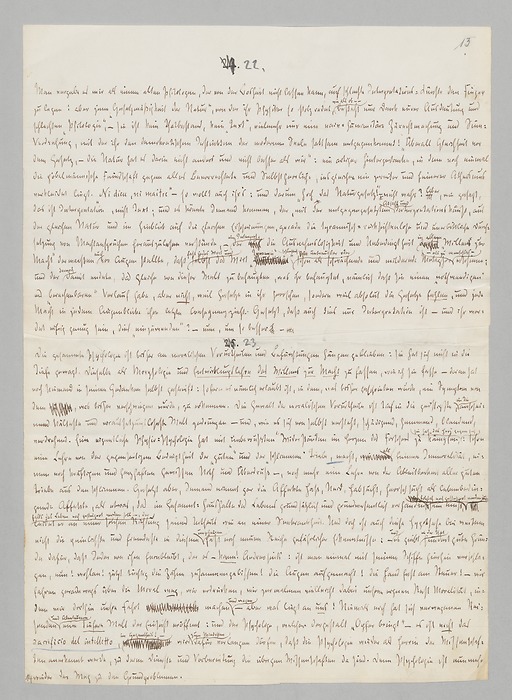 22.
13
Man vergebe es mir als einem alten Philologen, der von der Bosheit nicht lassen kann, auf schlechte Interpretations-Künste den Finger
zu legen: aber jene „Gesetzmäßigkeit der Natur", von der ihr Physiker so stolz redet, wie als ob — besteht nur Dank eurer Ausdeutung und
schlechten „Philologie" — sie ist kein Thatbestand, kein „Text", vielmehr nur eine naiv-humanitäre Zurechtmachung und Sinn-
Verdrehung, mit der ihr den demokratischen Instinkten der modernen Seele sattsam entgegenkommt! „Überall Gleichheit vor
dem Gesetz, — die Natur hat es darin nicht anders und nicht besser als wir": ein artiger Hintergedanke, in dem noch einmal
die pöbelmännische Feindschaft gegen alles Bevorrechtete und Selbstherrliche, insgleichen ein zweiter und feinerer Atheismus
verkleidet liegt. „Ni dieu, ni maître" — so wollt auch ihr's: und darum „hoch das Naturgesetz"! nicht wahr? Aber, wie gesagt,
das ist Interpretation, nicht Text; und es könnte Jemand kommen, der, mit der entgegengesetzten Absicht und Interpretationskunst, aus
der gleichen Natur und im Hinblick auf die gleichen Erscheinungen, gerade die tyrannisch-rücksichtenlose und unerbittliche Durch-
setzung von Machtansprüchen herauszulesen verstünde, — ein Interpret, der die Ausnahmslosigkeit und Unbedingtheit in allem „Willen zur
Macht" dermaaßen vor Augen stellte, daß fast jedes Wort und selbst das Wort „Tyrannei" schließlich unbrauchbar oder schon als schwächende und mildernde Metapher
und der dennoch damit endete, das Gleiche von dieser Welt zu behaupten, was ihr behauptet, nämlich daß sie einen „nothwendigen"
und „berechenbaren" Verlauf habe, aber nicht, weil Gesetze in ihr herrschen, sondern weil absolut die Gesetze fehlen, und jede
Macht in jedem Augenblicke ihre letzte Consequenz zieht. Gesetzt, daß auch dies nur Interpretation ist — und ihr wer-
det eifrig genug sein, dies einzuwenden? — nun, um so besser. —
23
Die gesammte Psychologie ist bisher an moralischen Vorurtheilen und Befürchtungen hängen geblieben: sie hat sich nicht in die
Tiefe gewagt. Dieselbe als Morphologie und Entwicklungslehre des Willens zur Macht zu fassen, wie ich sie fasse — daran hat
noch Niemand in seinen Gedanken selbst gestreift: sofern es nämlich erlaubt ist, in dem, was bisher geschrieben wurde, ein Symptom von
dem, was bisher verschwiegen wurde, zu erkennen. Die Gewalt der moralischen Vorurtheile ist tief in die geistigste, in die scheinbar
kälteste und voraussetzungsloseste Welt gedrungen — und, wie es sich von selbst versteht, schädigend, hemmend, blendend,
verdrehend. Eine eigentliche Physio-Psychologie hat mit unbewußten Widerständen im Herzen des Forschers zu kämpfen, sie hat „das Herz" gegen sich: schon
eine Lehre von der gegenseitigen Bedingtheit der „guten" und der „schlimmen" Triebe, macht, als feinere Immoralität, ei-
nem noch kräftigen und herzhaften Gewissen Noth und Überdruß, — noch mehr eine Lehre von der Ableitbarkeit aller guten
Triebe aus den schlimmen. Gesetzt aber, Jemand nimmt gar die Affekte Haß, Neid, Habsucht, Herrschsucht als lebenbedin-
gende Affekte, als etwas, das im Gesammt-Haushalte des Lebens grundsätzlich und grundwesentlich vorhanden sein muß,
leidet er an einer solchen Richtung seines Urtheils wie an einer Seekrankheit. Und doch ist auch diese Hypothese bei weitem
nicht die peinlichste und fremdeste in diesem fast noch neuen Reiche gefährlicher Erkenntnisse: — und es giebt in der That hundert gute Gründe
dafür, daß Jeder von ihm fernbleibt, der es — kann! Andrerseits: ist man einmal mit seinem Schiffe hierhin verschla-
gen, nun! wohlan! jetzt tüchtig die Zähne zusammengebissen! die Augen aufgemacht! die Hand fest am Steuer! — wir
fahren geradewegs über die Moral weg, wir erdrücken, wir zermalmen vielleicht dabei unsren eignen Rest Moralität, in-
dem wir dorthin unsre Fahrt machen und wagen — aber was liegt an uns! Niemals noch hat sich verwegenen Rei-
senden und Abenteurern eine tiefere Welt der Einsicht eröffnet: und der Psychologe, welcher dergestalt „Opfer bringt" — es ist nicht das
sacrifizio dell'intelletto, im Gegentheil! — wird zum Mindesten dafür verlangen dürfen, daß die Psychologie wieder als Herrin der Wissenschaf-
ten anerkannt werde, zu deren Dienste und Vorbereitung die übrigen Wissenschaften da sind. Denn Psychologie ist nunmehr
wieder der Weg zu den Grundproblemen.